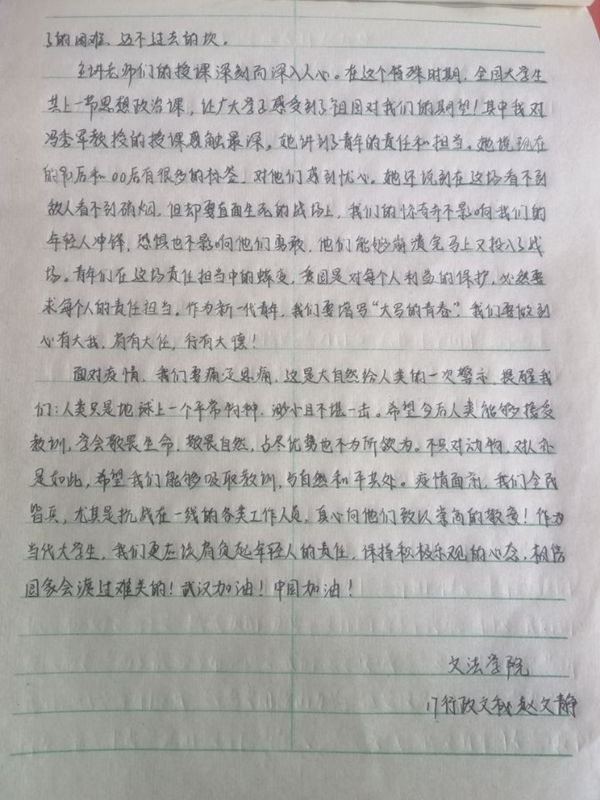 了的困难、迈不过去的坎。
主讲老师们的授课深刻而深入人心。在这个特殊时期，全国大学生
共上一节思想政治课，让广大学子感受到了祖国对我们的期望！其中我对
冯秀军教授的授课感触最深，她讲到了青年的责任和担当。她说现在
的90后和00后有很多的标签，对他们感到忧心。她还说到在这场看不到
敌人看不到硝烟，但却要直面生死的战场上，我们的惊奇不影响我们的
年轻人冲锋，恐惧也不影响他们勇敢，他们能够崩溃完马上又投入了战
场。青年们在这场责任担当中的蜕变，爱国是对每个人利益的保护，必然要
求每个人的责任担当。作为新一代青年，我们要填写“大写的青春”。我们要做到
心有大我，肩有大任，行有大德！
面对疫情，我们要痛定思痛，这是大自然给人类的一次警示，提醒我
们：人类只是地球上一个平常物种，渺小且不堪一击。希望今后人类能够接受
教训，学会敬畏生命，敬畏自然，占尽优势也不为所欲为。不只对动物，对人亦
是如此，希望我们能够吸取教训，与自然和平共处。疫情面前，我们全民
皆兵，尤其是抗战在一线的各类工作人员，真心向他们致以崇高的敬意！作为
当代大学生，我们更应该肩负起年轻人的责任，保持积极乐观的心态，相信
国家会渡过难关的！武汉加油！中国加油！
文法学院
17行政文秘赵文静